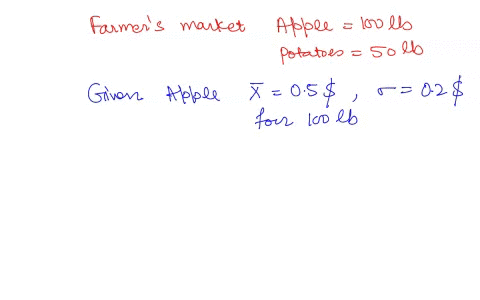 Farmer's market Apple = 100 lb
potatoes = 50 lb
Given Apple X̄ = 0.5 $ , σ = 0.2 $
for 100 lb